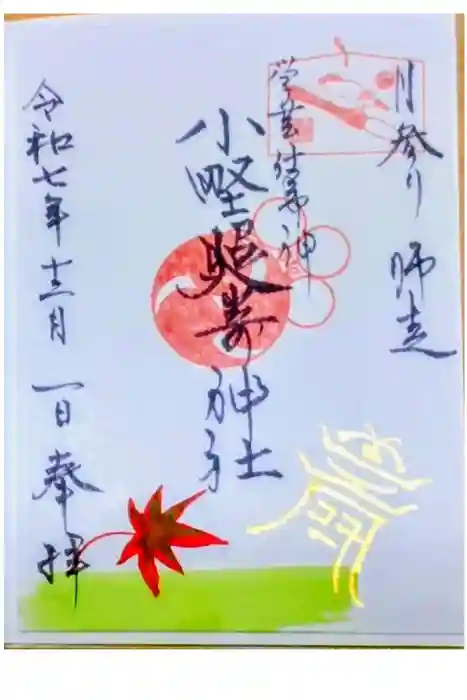 月参り 師走
学芸仕事神
小野照崎神社
令和七年十二月一日奉拝